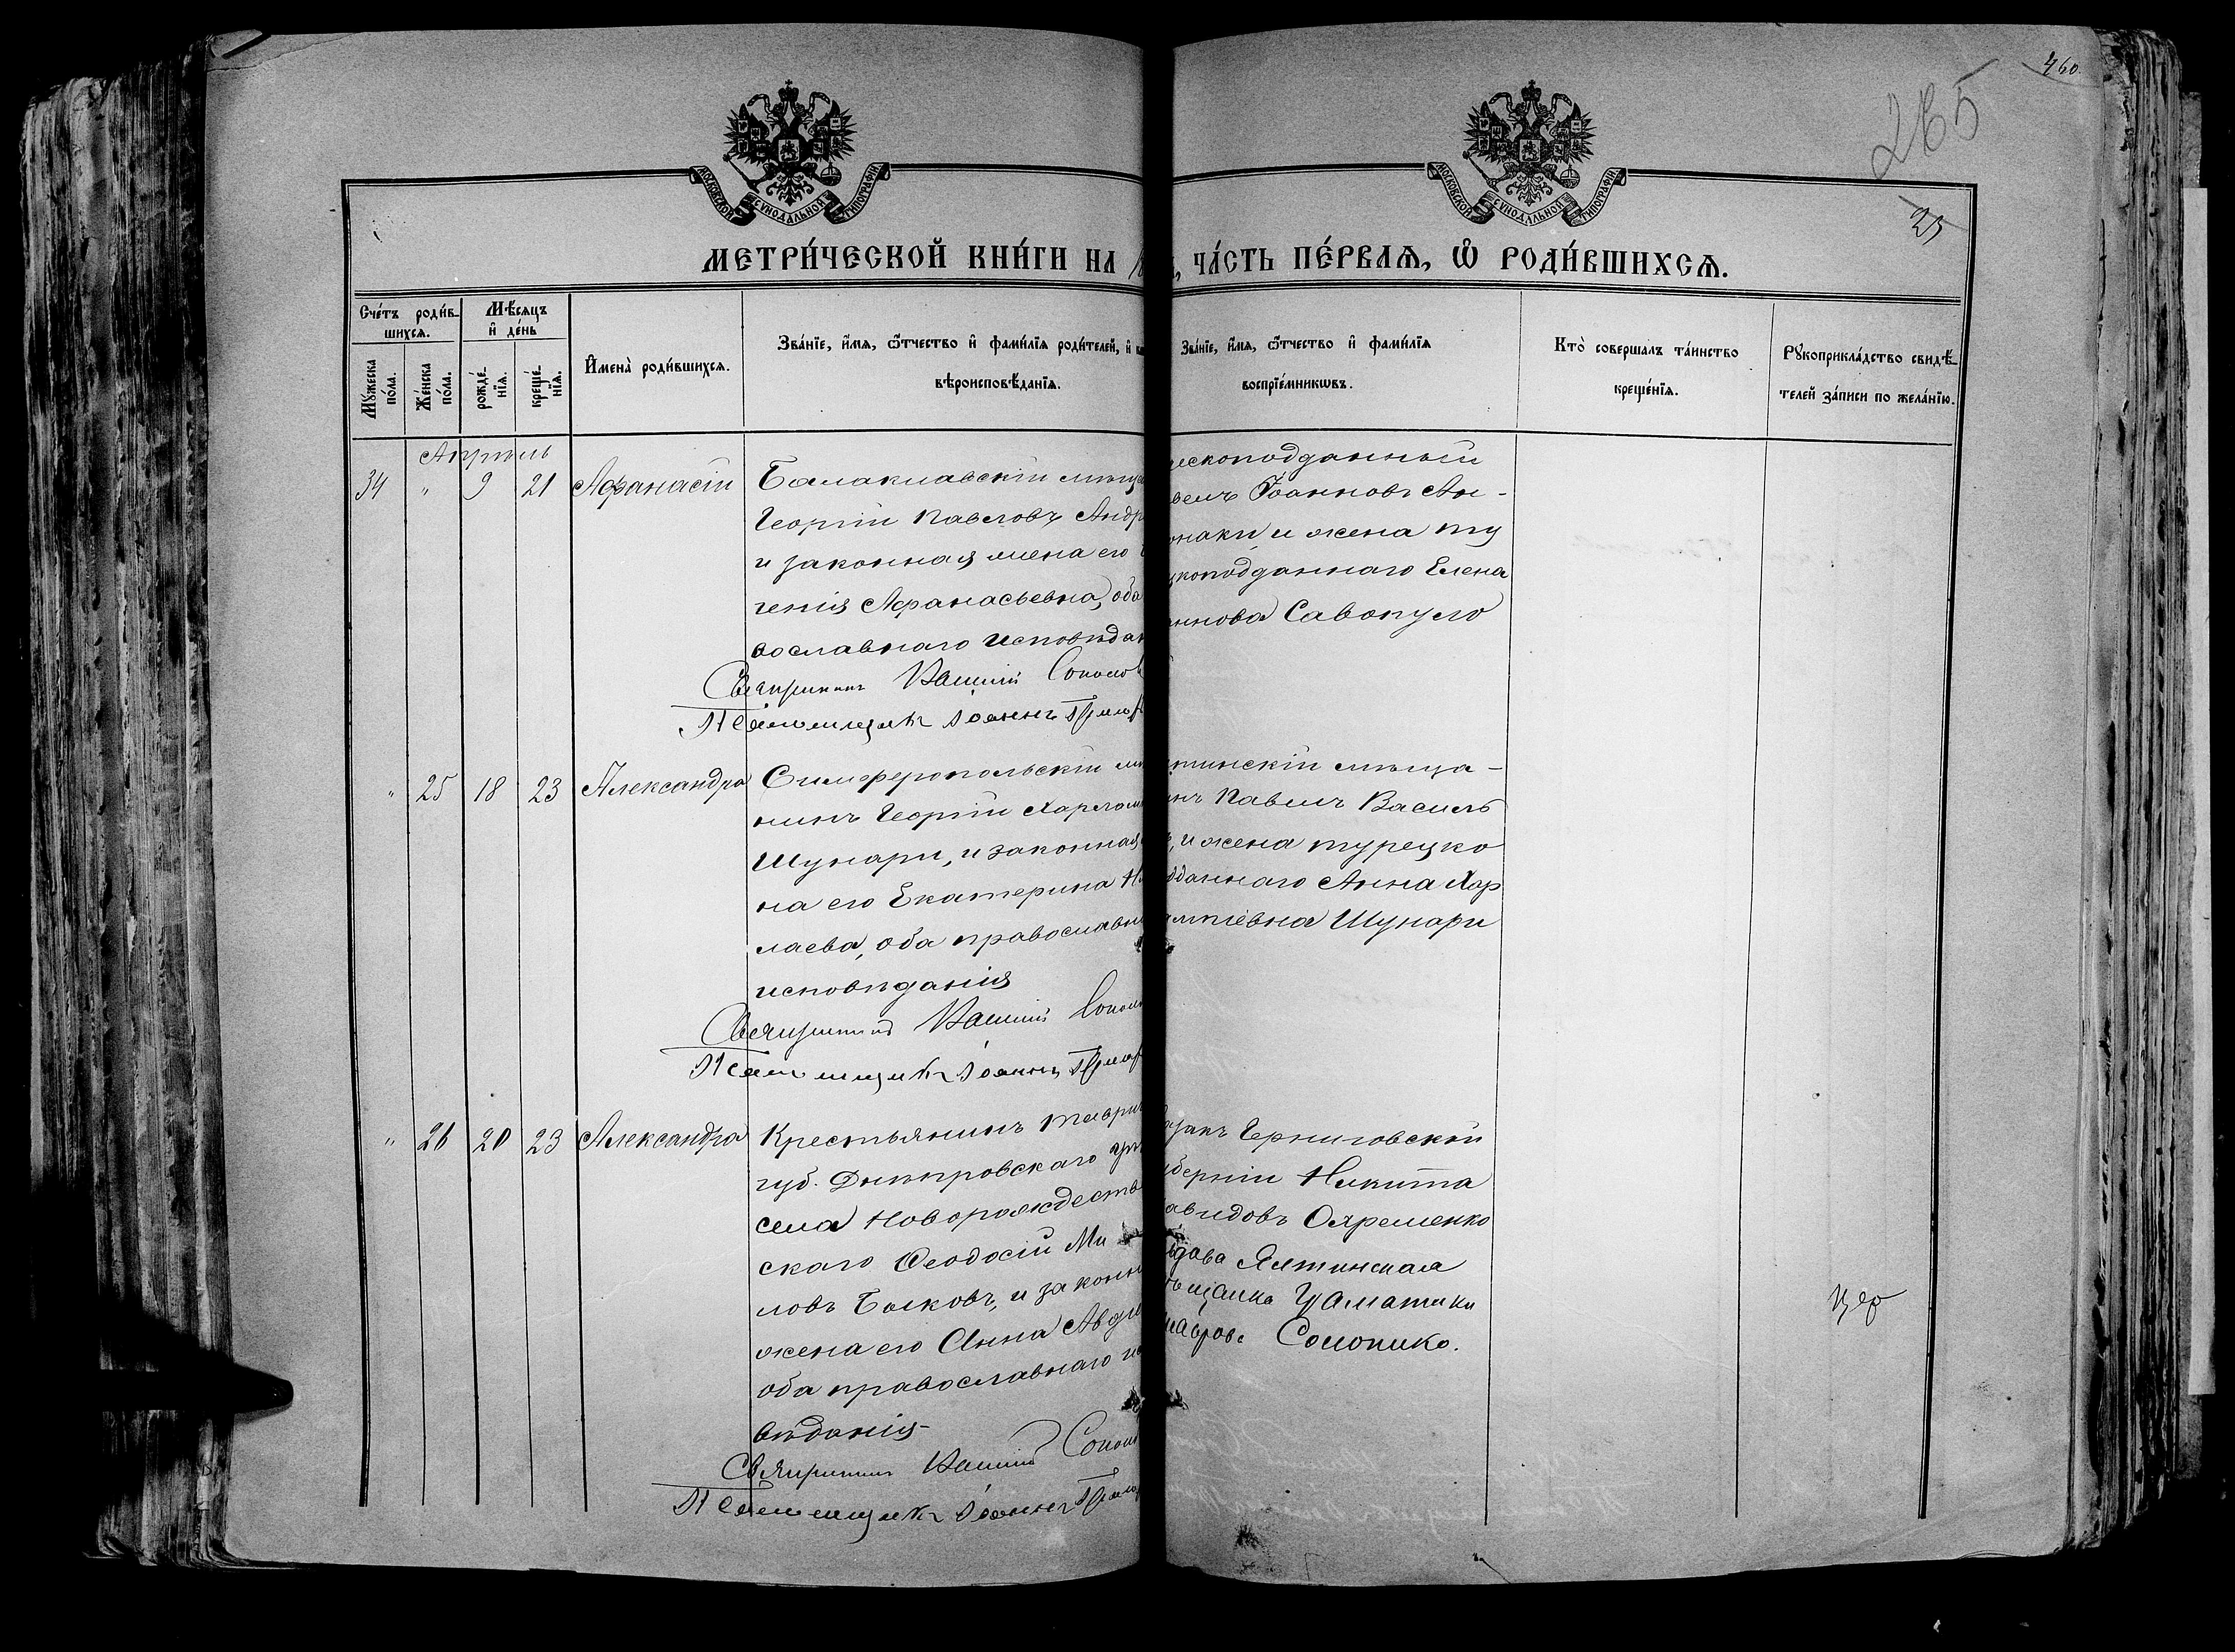 460
265
25
МОСКОВСКОЙ СѴНОДАЛЬНОЙ ТИПОГРАФІИ
МОСКОВСКОЙ СѴНОДАЛЬНОЙ ТИПОГРАФІИ
МЕТРИ́ЧЕСКОЙ КНИ́ГИ НА
ЧА́СТЬ ПЕ́РВАѦ, Ѡ҆ РОДИ́ВШИХСѦ.
Сче́тъ роди́вшихсѧ.
Мѣ́сѧцъ и҆ де́нь
Мꙋ́жеска по́ла.
Же́нска по́ла.
рожде́нїѧ.
креще́нїѧ.
И҆мена̀ роди́вшихсѧ.
Зва́нїе, и҆́мѧ, ѻ҆́тчество и҆ фами́лїѧ роди́телей, и҆
вѣроисповѣ́данїѧ.
Зва́нїе, и҆́мѧ, ѻ҆́тчество и҆ фами́лїѧ
воспрїе́мникѡвъ.
Кто̀ соверша́лъ та́инство
креще́нїѧ.
Рꙋкоприкла́дство свидѣ́-
телей за́писи по жела́нїю.
Апрѣль
34 " 9 21 Афанасій
Балаклавскій мѣща
Георгій Павловъ Андр
и законная жена его
генія Афанасьевна, оба
вославнаго исповѣдан
Священникъ Василій Соколов
Псаломщикъ Іоаннъ
ескоподданный
велъ Іоанновъ Ан-
онаки и жена ту
цкоподданнаго Елена
аннова Савопуло
" 25 18 23 Александра
Симферопольскій мѣ
нинъ Георгій Харлам
Шунари, и законная
на его Екатерина Ни
лаева, оба православн
исповѣданія
Священникъ Василій Сокол
Псаломщикъ Іоаннъ
тинскій мѣща-
инъ Павелъ Василь
ъ, и жена турецко
дданнаго Анна Хар
ампіевна Шунари
" 26 20 23 Александра
Крестьянинъ Таври
губ. Днѣпровскаго
села Новорождеств
скаго Ѳеодосій Ми
ловъ Быковъ, и законн
жена его Анна Авди
оба православнаго ис
вѣданія
Священникъ Василій Сокол
Псаломщикъ Іоаннъ
азакъ Черниговскій
уберніи Никита
авидовъ Охременко
вдова Ялтинская
ѣщанка
Солопико.